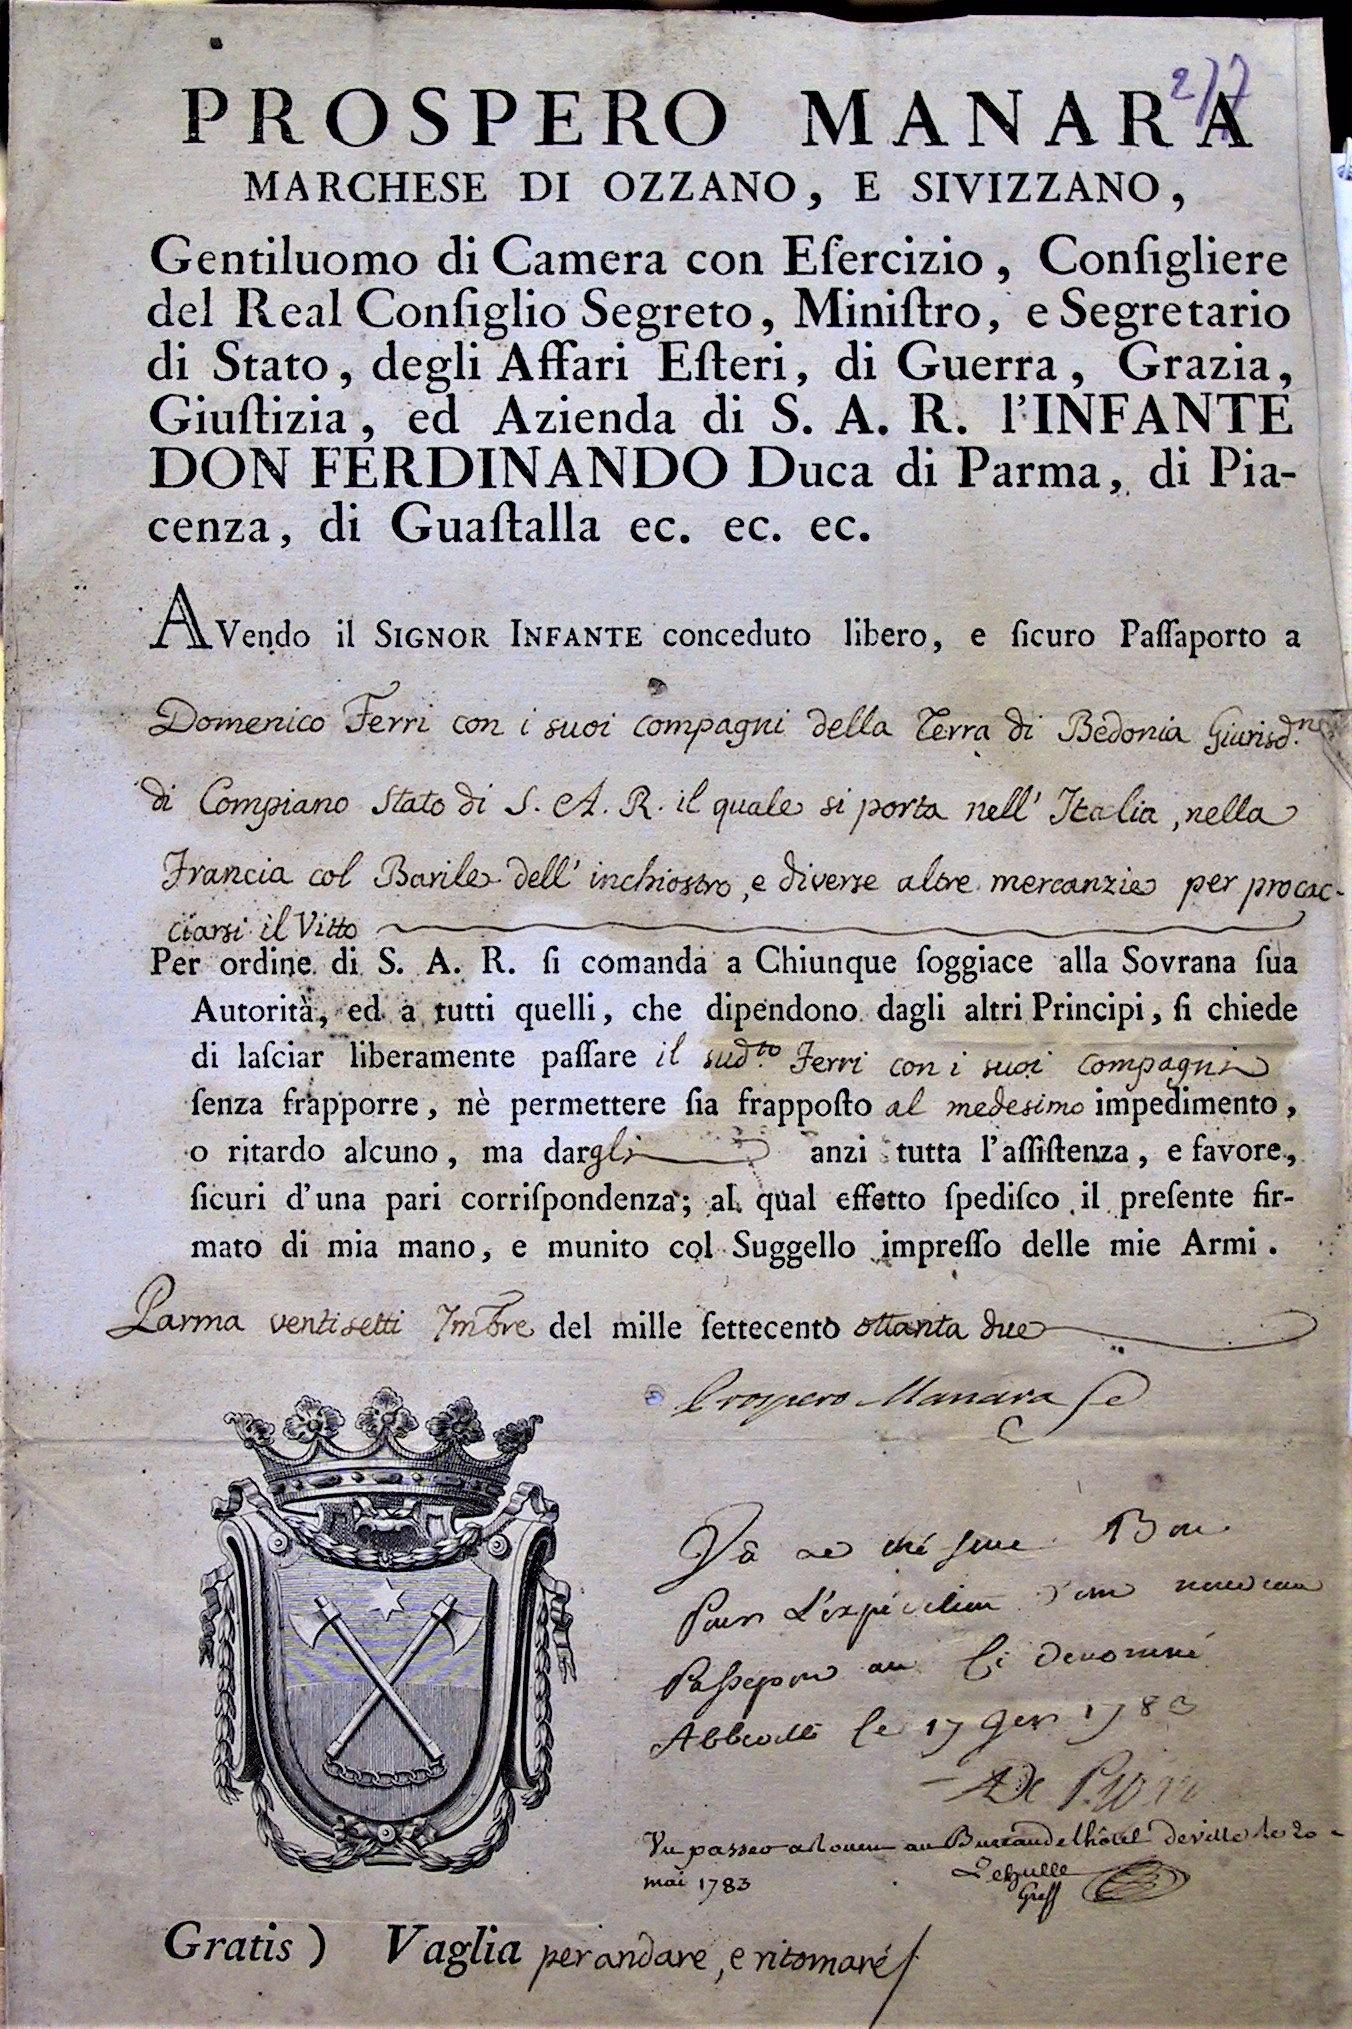 277
PROSPERO MANARA
MARCHESE DI OZZANO, E SIVIZZANO,
Gentiluomo di Camera con Eſercizio, Conſigliere
del Real Conſiglio Segreto, Miniſtro, e Segretario
di Stato, degli Affari Eſteri, di Guerra, Grazia,
Giuſtizia, ed Azienda di S. A. R. l'INFANTE
DON FERDINANDO Duca di Parma, di Pia-
cenza, di Guaſtalla ec. ec. ec.
AVendo il SIGNOR INFANTE conceduto libero, e ſicuro Paſſaporto a
Domenico Ferri con i suoi compagni della Terra di Bedonia Giurisd.ne
di Compiano Stato di S. A. R. il quale si porta nell' Italia, nella
Francia col Barile dell' inchiostro, e diverse altre mercanzie per procac-
ciarsi il Vitto
Per ordine di S. A. R. ſi comanda a Chiunque ſoggiace alla Sovrana ſua
Autorità, ed a tutti quelli, che dipendono dagli altri Principi, ſi chiede
di laſciar liberamente paſſare il sud.to Ferri con i suoi compagni
ſenza frapporre, nè permettere ſia frappoſto al medesimo impedimento,
o ritardo alcuno, ma dargli anzi tutta l'aſſiſtenza, e favore,
ſicuri d'una pari corriſpondenza; al qual effetto ſpediſco il preſente fir-
mato di mia mano, e munito col Suggello impreſſo delle mie Armi.
Parma ventisetti 7mbre del mille ſettecento ottanta due
Prospero Manara
Bon
Pour L'expédition d'un nouveau
Passeport au denommé
Abbeville le 17 1783
De
Vu passer a Rouen au Bureau de lhôtel de ville le 20
mai 1783
Greff
Gratis) Vaglia per andare, e ritornare